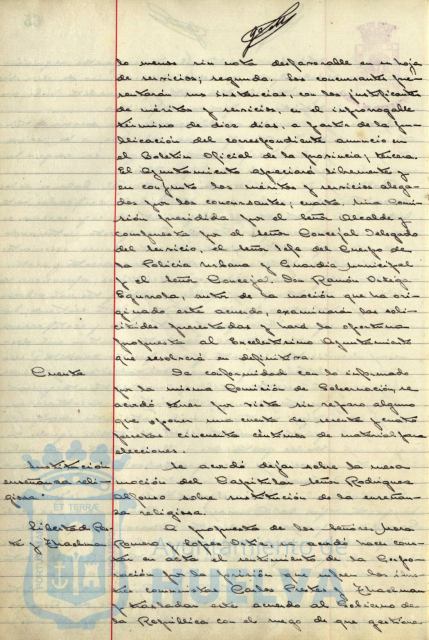 lo menos sin nota desfavorable en su hoja
de servicios; segunda. Los concursantes pre-
sentarán sus instancias, con los justificantes
de méritos y servicios, en el improrrogable
término de diez días, a partir de la pu-
blicación del correspondiente anuncio en
el Boletín Oficial de la provincia; tercera.
El Ayuntamiento apreciará libremente y
en conjunto los méritos y servicios alega-
dos por los concursantes; cuarta. Una Comi-
sión presidida por el Señor Alcalde y
compuesta por el Señor Concejal Delegado
del servicio, el Señor Jefe del Cuerpo de
la Policía Urbana y Guardia municipal
y el Señor Concejal Don Ramón Ortega
autor de la moción que ha ori-
ginado este acuerdo, examinarán las soli-
citudes presentadas y hará la oportuna
propuesta al Excelentísimo Ayuntamiento
que resolverá en definitiva.
Cuenta
De conformidad con lo informado
por la misma Comisión de Gobernación, se
acordó tener por vista sin reparo alguno
que oponer una cuenta de
pesetas cincuenta céntimos de material para
elecciones.
Sustitución
enseñanza reli-
giosa.
Se acordó dejar sobre la mesa
moción del Capitular Señor Rodríguez
Alfonso sobre sustitución de la enseñan-
za religiosa.
Libertad Pres-
tes y Thaelman
A propuesta de los Señores, Mora
Romero y López Ortiz, se acordó hacer cons-
tar en acta el sentimiento de la Corpo-
ración por la prisión que sufren los
comunistas Carlos Prestes y Thaelman
y trasladar este acuerdo al Gobierno de
la República con el ruego de que gestione
ET TERRAE
Ayuntamiento de
HUELVA